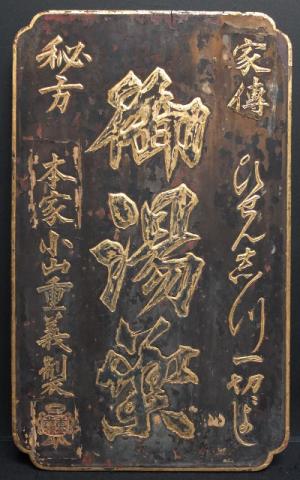 家傳
ひせん志つ一切よし
御湯薬
秘方
本家小山重義製